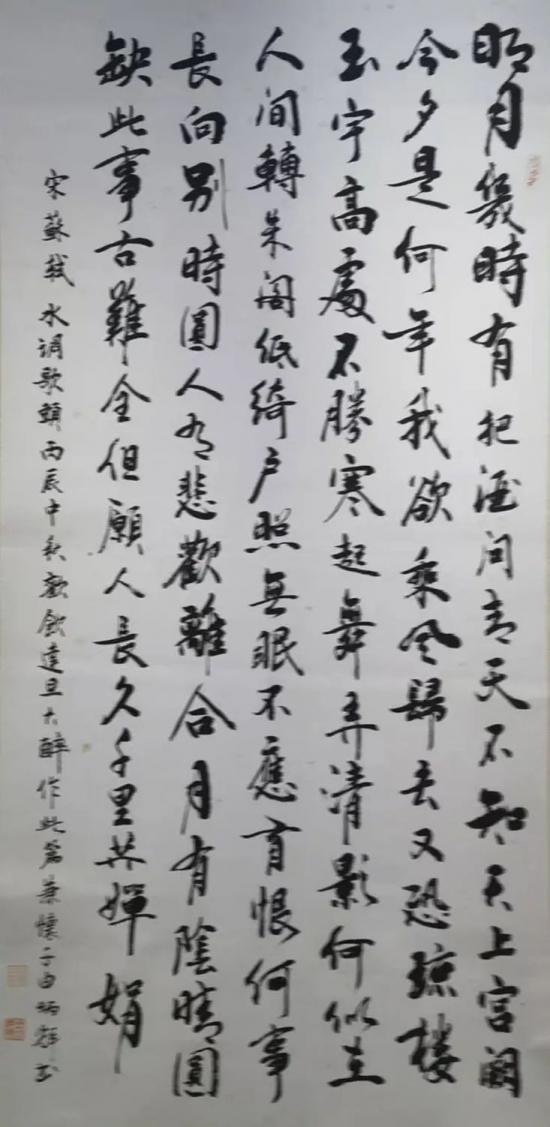 明月幾時有把酒問青天不知天上宫闕
今夕是何年我欲乘风歸去又恐琼楼
玉宇高處不勝寒起舞弄清影何似在
人间轉朱阁低绮户照無眠不應有恨何事
長向别時圓人有悲歡離合月有陰晴圆
缺此事古難全但願人長久千里共嬋娟
宋蘇軾水调歌頭丙辰中秋歡飲達旦大醉作此篇兼懷子由炳辉书